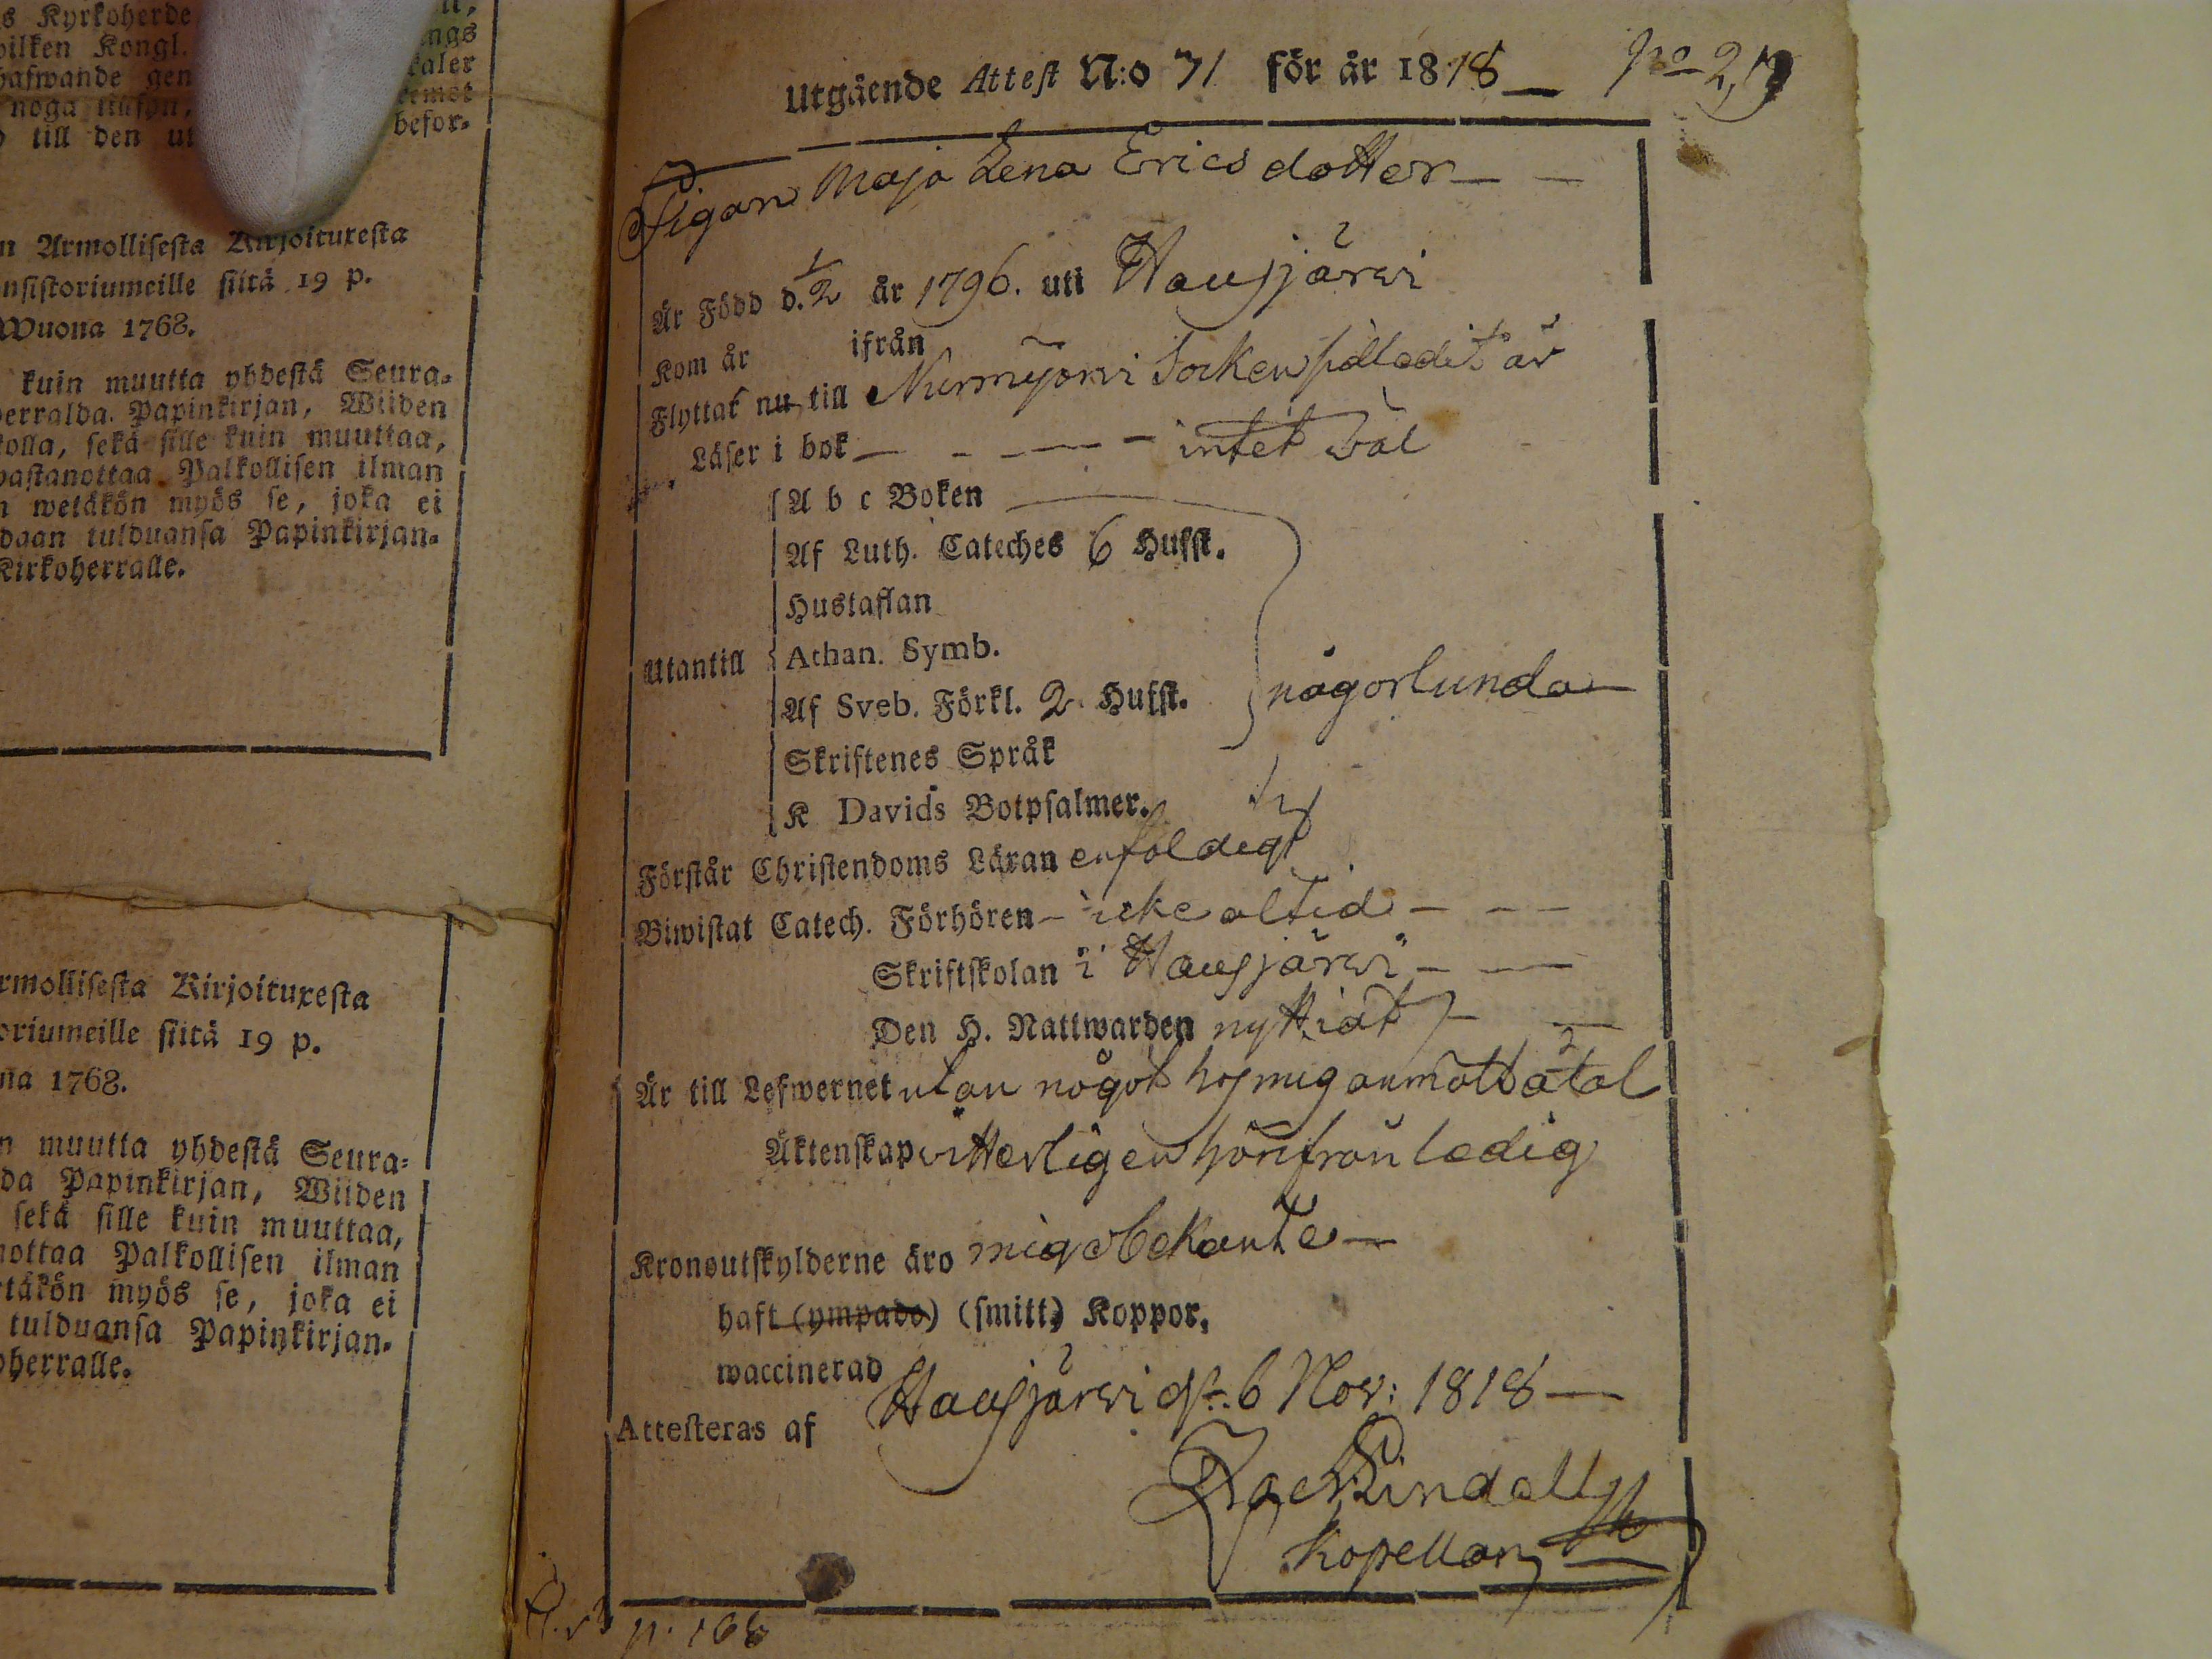 s Kyrkoherde
hilken Kongl.
hafwande gen
noga
till den ut
ngs
kaler
befor-
n Armollisesta Kirjoituxesta
nsistoriumeille siitä 19 p.
Wuona 1768.
kuin muutta yhdestä Seura-
herralda Papinkirjan, Wiiden
kolla, sekä sille kuin muuttaa,
wastanottaa Palkollisen ilman
n wetäkön myös se, joka ei
daan tulduansa Papinkirjan-
Kirkoherralle.
rmollisesta Kirjoituxesta
oriumeille siitä 19 p.
na 1768.
n muutta yhdestä Seura-
da Papinkirjan, Wiiden
sekä sille kuin muuttaa,
nottaa Palkollisen ilman
etäkön myös se, joka ei
tulduansa Papinkirjan-
oherralle.
Utgående Attest N:o 71 för år 1818
Pigan Maja Lena Ericsdotter
Är Född d. 1/2 år 1796. uti Hausjärwi
Kom år ifrån
Flyttar nu till Nurmijärwi Socken
Läser i bok intet wäl
A b c Boken
Af Luth. Cateches 6 Hufst.
Hustaflan
Utantill Athan. Symb.
Af Sveb. Förkl. 2 Hufst. någorlunda
Skriftenes Språk
K Davids Botpsalmer.
Förstår Christendoms Läran enfaldigt
Biwistat Catech. Förhören icke altid
Skriftskolan i Hausjärwi
Den H. Nattwarden nyttjat
Är till Lefwernet utan något hos mig anmält åtal
Äktenskap witterligen härifrån ledig
Kronoutskylderne äro mig obekante
haft (ympade) (smitt) Koppor,
waccinerad
Attesteras af Hausjärwi d. 6 Nov: 1818
Lindell
Kapellan
p. 166